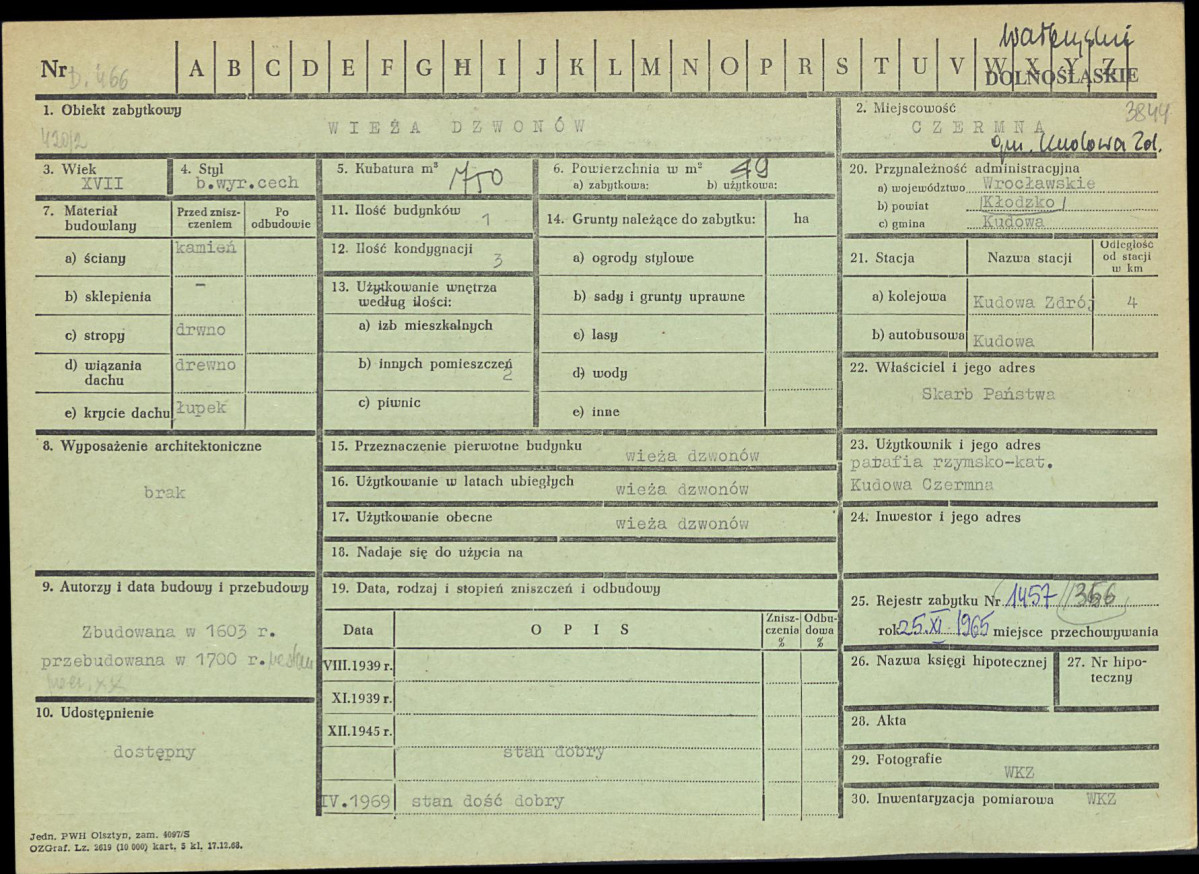 Nr D. 466 A B C D E F G H I J K L M N O P R S T U V W X Y Z
Wałbrzyskie
DOLNOŚLĄSKIE
1. Obiekt zabytkowy
WIEŻA DZWONÓW
420/2
2. Miejscowość 3844
CZERMNA
gm. Kudowa Zd.
3. Wiek
XVII
4. Styl
b.wyr.cech
5. Kubatura m³ 1750
6. Powierzchnia w m² 49
a) zabytkowa: b) użytkowa:
7. Materiał budowlany
Przed zniszczeniem
Po odbudowie
a) ściany kamień
b) sklepienia –
c) stropy drwno
d) wiązania dachu drewno
e) krycie dachu łupek
8. Wyposażenie architektoniczne
brak
9. Autorzy i data budowy i przebudowy
Zbudowana w 1603 r.
przebudowana w 1700 r.
10. Udostępnienie
dostępny
11. Ilość budynków 1
12. Ilość kondygnacji 3
13. Użytkowanie wnętrza
według ilości:
a) izb mieszkalnych
b) innych pomieszczeń 2
c) piwnic
14. Grunty należące do zabytku: ha
a) ogrody stylowe
b) sady i grunty uprawne
c) lasy
d) wody
e) inne
15. Przeznaczenie pierwotne budynku
wieża dzwonów
16. Użytkowanie w latach ubiegłych
wieża dzwonów
17. Użytkowanie obecne
wieża dzwonów
18. Nadaje się do użycia na
19. Data, rodzaj i stopień zniszczeń i odbudowy
Data OPIS Zniszczenia % Odbudowa %
VIII.1939 r.
XI.1939 r.
XII.1945 r.
stan dobry
IV.1969 stan dość dobry
20. Przynależność administracyjna
a) województwo Wrocławskie
b) powiat /Kłodzko/
c) gmina Kudowa
21. Stacja Nazwa stacji Odległość od stacji w km
a) kolejowa Kudowa Zdrój 4
b) autobusowa Kudowa
22. Właściciel i jego adres
Skarb Państwa
23. Użytkownik i jego adres
parafia rzymsko-kat.
Kudowa Czermna
24. Inwestor i jego adres
25. Rejestr zabytku Nr 1457 /366
rok 25.XI 1965 miejsce przechowywania
26. Nazwa księgi hipotecznej
27. Nr hipoteczny
28. Akta
29. Fotografie
WKZ
30. Inwentaryzacja pomiarowa WKZ
Jedn. PWH Olsztyn, zam. 4097/S
OZGraf. Lz. 2619 (10 000) kart. 5 kl. 17.12.68.